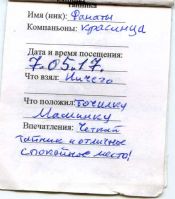 Имя (ник): Фанаты
Компаньоны: Красинца
Дата и время посещения:
7.05.17.
Что взял: Ничего
Что положил: Точилку
Машинку
Впечатления: Четкий
тайник и отличное
спокойное место!